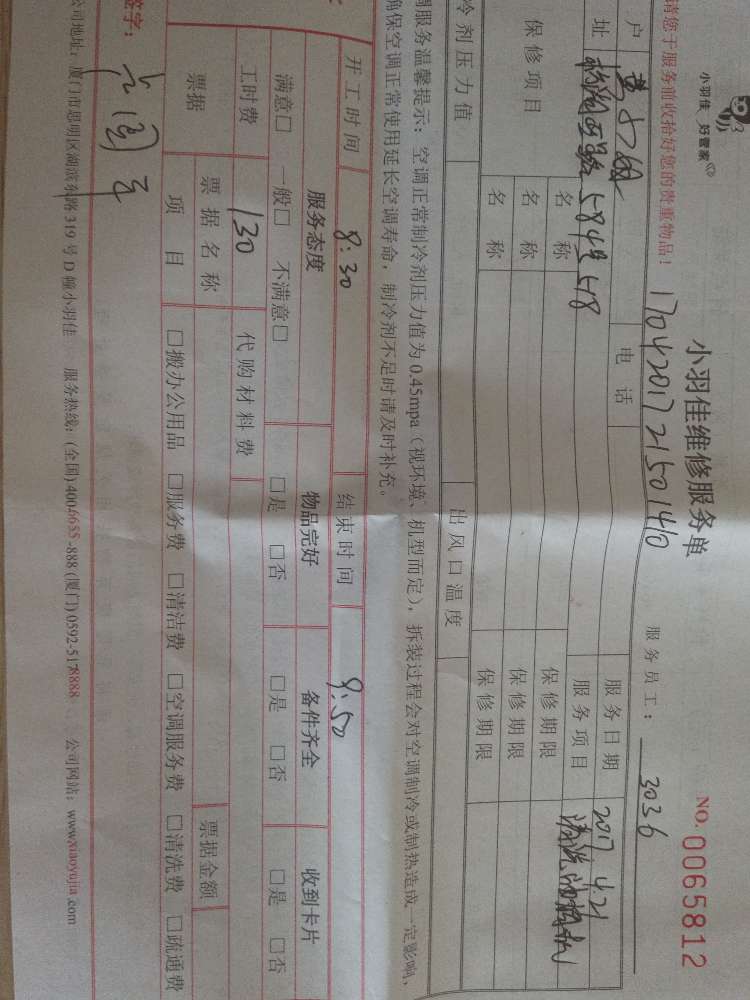 小羽佳 好管家
小羽佳维修服务单
NO. 0065812
请您于服务前收拾好您的贵重物品!
1704201721501410
服务员工: 3036
户
电 话
服务日期
2017 4.21
址
584号 518
服务项目
清洗油烟机
保修项目
名 称
保修期限
名 称
保修期限
名 称
保修期限
冷剂压力值
出风口温度
调服务温馨提示: 空调正常制冷剂压力值为 0.45mpa(视环境、机型而定),拆装过程会对空调制冷或制热造成一定影响,
确保空调正常使用延长空调寿命,制冷剂不足时请及时补充。
开工时间
8:30
结束时间
9:50
服务态度
物品完好
备件齐全
收到卡片
满意□ 一般□ 不满意□
□是 □否
□是 □否
□是 □否
工时费
130
代购材料费
票据
票据名称
票据金额
项 目
□搬办公用品 □服务费 □清洁费 □空调服务费 □清洗费 □疏通费
签字:
公司地址:厦门市思明区湖滨东路 319 号 D 幢小羽佳 服务热线:(全国) 4006655-888 (厦门) 0592-5178888 公司网站: www.xiaoyujia.com